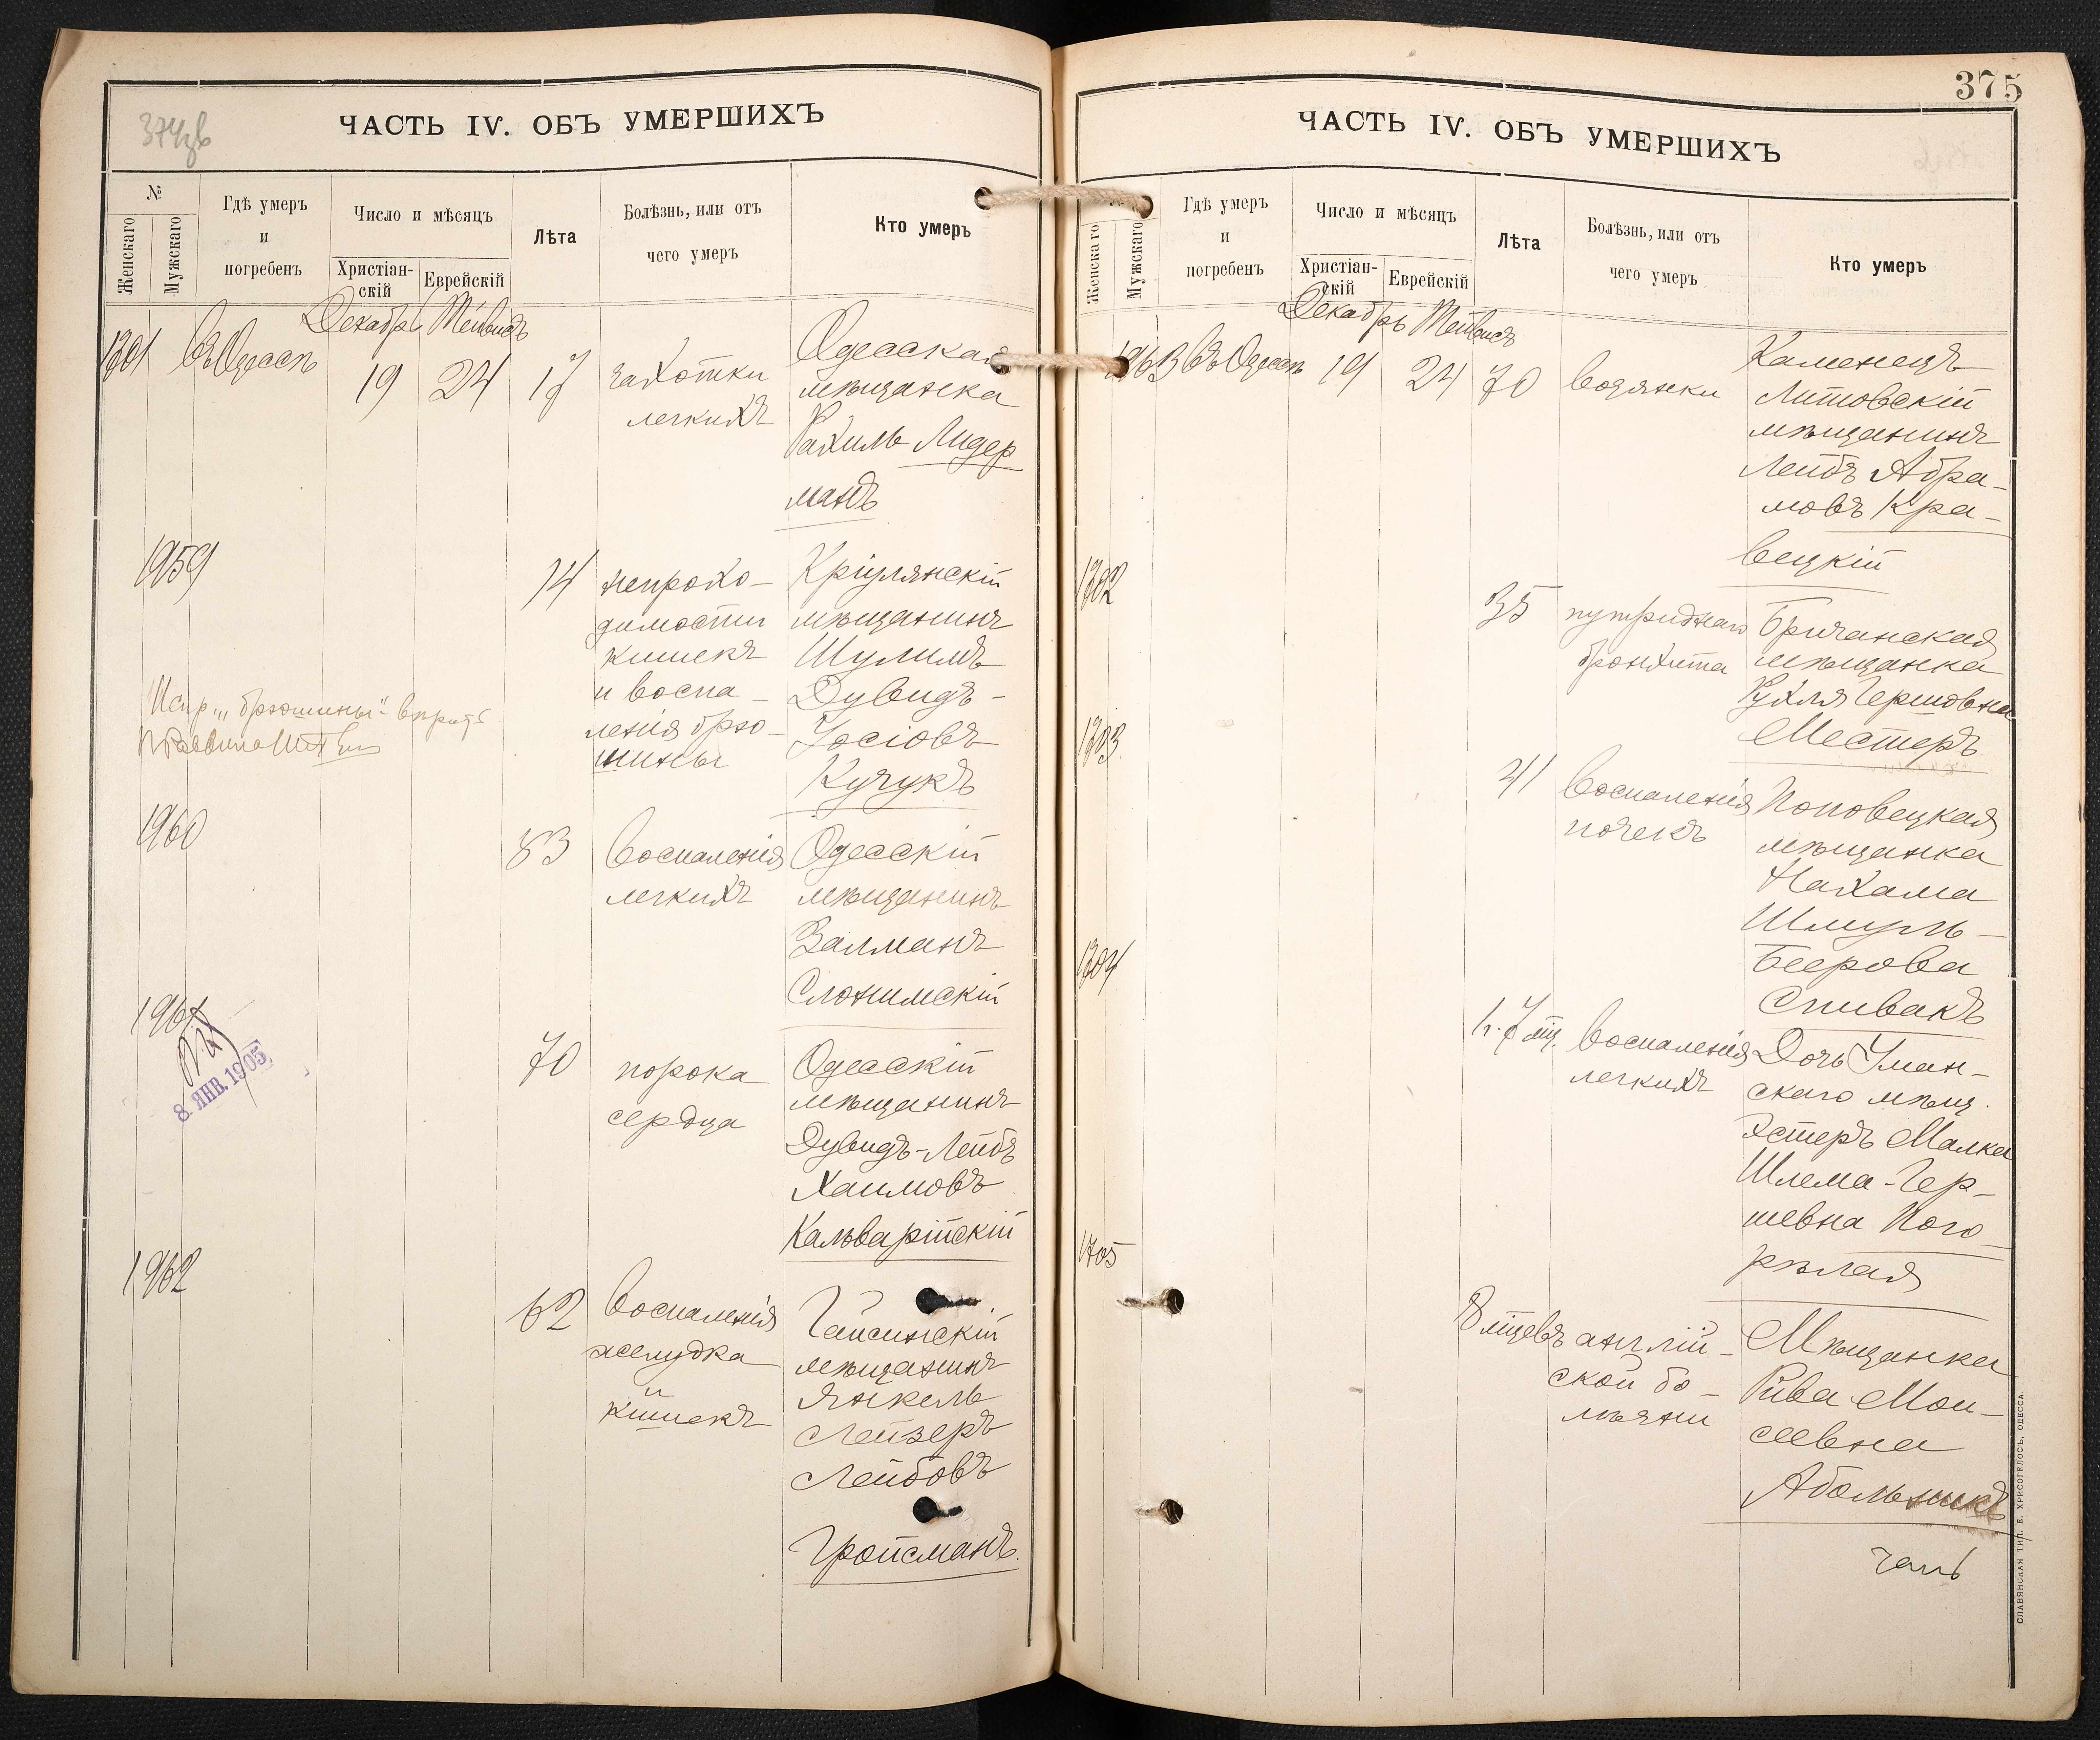 374зв
ЧАСТЬ IV. ОБЪ УМЕРШИХЪ
№
Женскаго
Мужскаго
Гдѣ умеръ
и
погребенъ
Число и мѣсяцъ
Христіан-
скій
Еврейскій
Лѣта
Болѣзнь, или отъ
чего умеръ
Кто умеръ
Декабрь Тейвисъ
1301 Въ Одессѣ 19 24 17
чахотки
легкихъ
Одесская
мѣщанка
Рахиль Лидер
манъ
1959
74
непрохо-
димости
кишекъ
и воспа-
ленія брю-
шины
Кріулянскій
мѣщанинъ
Шулимъ
Дувидъ-
Іосіовъ
Кучукъ
Испр. „брюшины"
1960
83
воспаленія
легкихъ
Одесскій
мѣщанинъ
Залманъ
Слонимскій
1961
8 ЯНВ. 1905
70
порока
сердца
Одесскій
мѣщанинъ
Дувидъ-Лейбъ
Хаимовъ
Кальварійскій
1962
62
воспаленія
желудка
и
кишекъ
Гайсинскій
мѣщанинъ
Янкель
Лейзеръ
Лейбовъ
Гройсманъ.
375
ЧАСТЬ IV. ОБЪ УМЕРШИХЪ
Женскаго
Мужскаго
Гдѣ умеръ
и
погребенъ
Число и мѣсяцъ
Христіан-
скій
Еврейскій
Лѣта
Болѣзнь, или отъ
чего умеръ
Кто умеръ
Декабрь Тейвисъ
1963 Въ Одессѣ 19 24 70 водянки
Каменецъ
Литовскій
мѣщанинъ
Лейбъ Абра-
мовъ Кра-
вецкій
1302
35
путриднаго
бронхита
Бричанская
мѣщанка
Рухля Гершовна
Местеръ
1303
41
воспаленія
почекъ
Поповецкая
мѣщанка
Нахама
Шмуль-
Беерова
Спивакъ
1304
1 г. 7 мц.
воспаленія
легкихъ
Дочь Уман-
скаго мѣщ.
Эстеръ Малка
Шлема-Гер-
шевна Пого
рѣлая
1305
8 мцевъ
англій-
ской бо-
лѣзни
Мѣщанка
Рива Мои-
сеевна
Абольникъ
СЛАВЯНСКАЯ ТИП. Е. ХРИСОГЕЛОСЪ, ОДЕССА